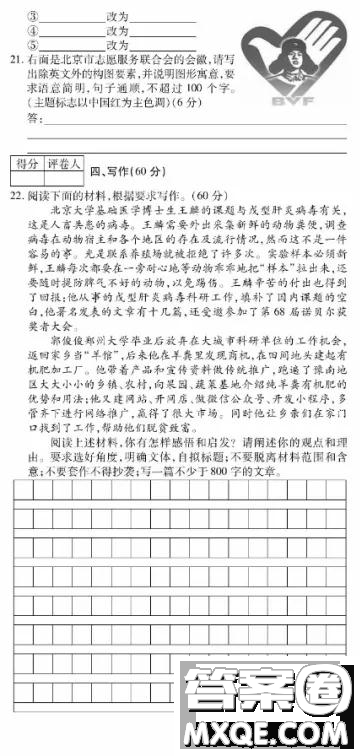 ③________改为________
④________改为________
⑤________改为________
21. 右面是北京市志愿服务联合会的会徽,请写
出除英文外的构图要素,并说明图形寓意,要
求语意简明,句子通顺,不超过 100 个字。
(主题标志以中国红为主色调)(6 分)
答:
BVF
得分 评卷人
四、写作(60 分)
22. 阅读下面的材料,根据要求写作。(60 分)
北京大学基础医学博士生王麟的课题与戊型肝炎病毒有关,
这是人畜共患的病毒。王麟需要外出采集新鲜的动物粪便,调查
病毒在动物宿主和各个地区的存在及流行情况,然而这不是一件
容易的事。光是联系养殖场就被拒绝了许多次。实验样本必须新
鲜,王麟每次都要在一旁耐心地等动物乖乖地把“样本”拉出来,还
要随时提防脾气不好的动物,以免踢伤。王麟辛苦的付出也得到
了回报:他从事的戊型肝炎病毒科研工作,填补了国内课题的空
白,他署名发表的文章有十几篇,还受邀参加了第 68 届诺贝尔获
奖者大会。
郭俊俊郑州大学毕业后放弃在大城市科研单位的工作机会,
返回家乡当“羊馆”,后来他在羊粪里发现商机,在田间地头建起有
机肥加工厂。他带着产品和宣传资料做传统推广,跑遍了豫南地
区大大小小的乡镇、农村,向果园、蔬菜基地介绍纯羊粪有机肥的
优势和用法;他又建网站、开网店、做微信公众号、开发小程序,多
管齐下进行网络推广,赢得了很大市场。同时他让乡亲们在家门
口找到了工作,帮助他们脱贫致富。
阅读上述材料,你有怎样感悟和启发?请阐述你的观点和理
由。要求选好角度,明确文体,自拟标题;不要脱离材料范围和含
意;不要套作不得抄袭;写一篇不少于 800 字的文章。
答案圈
MXQE.COM